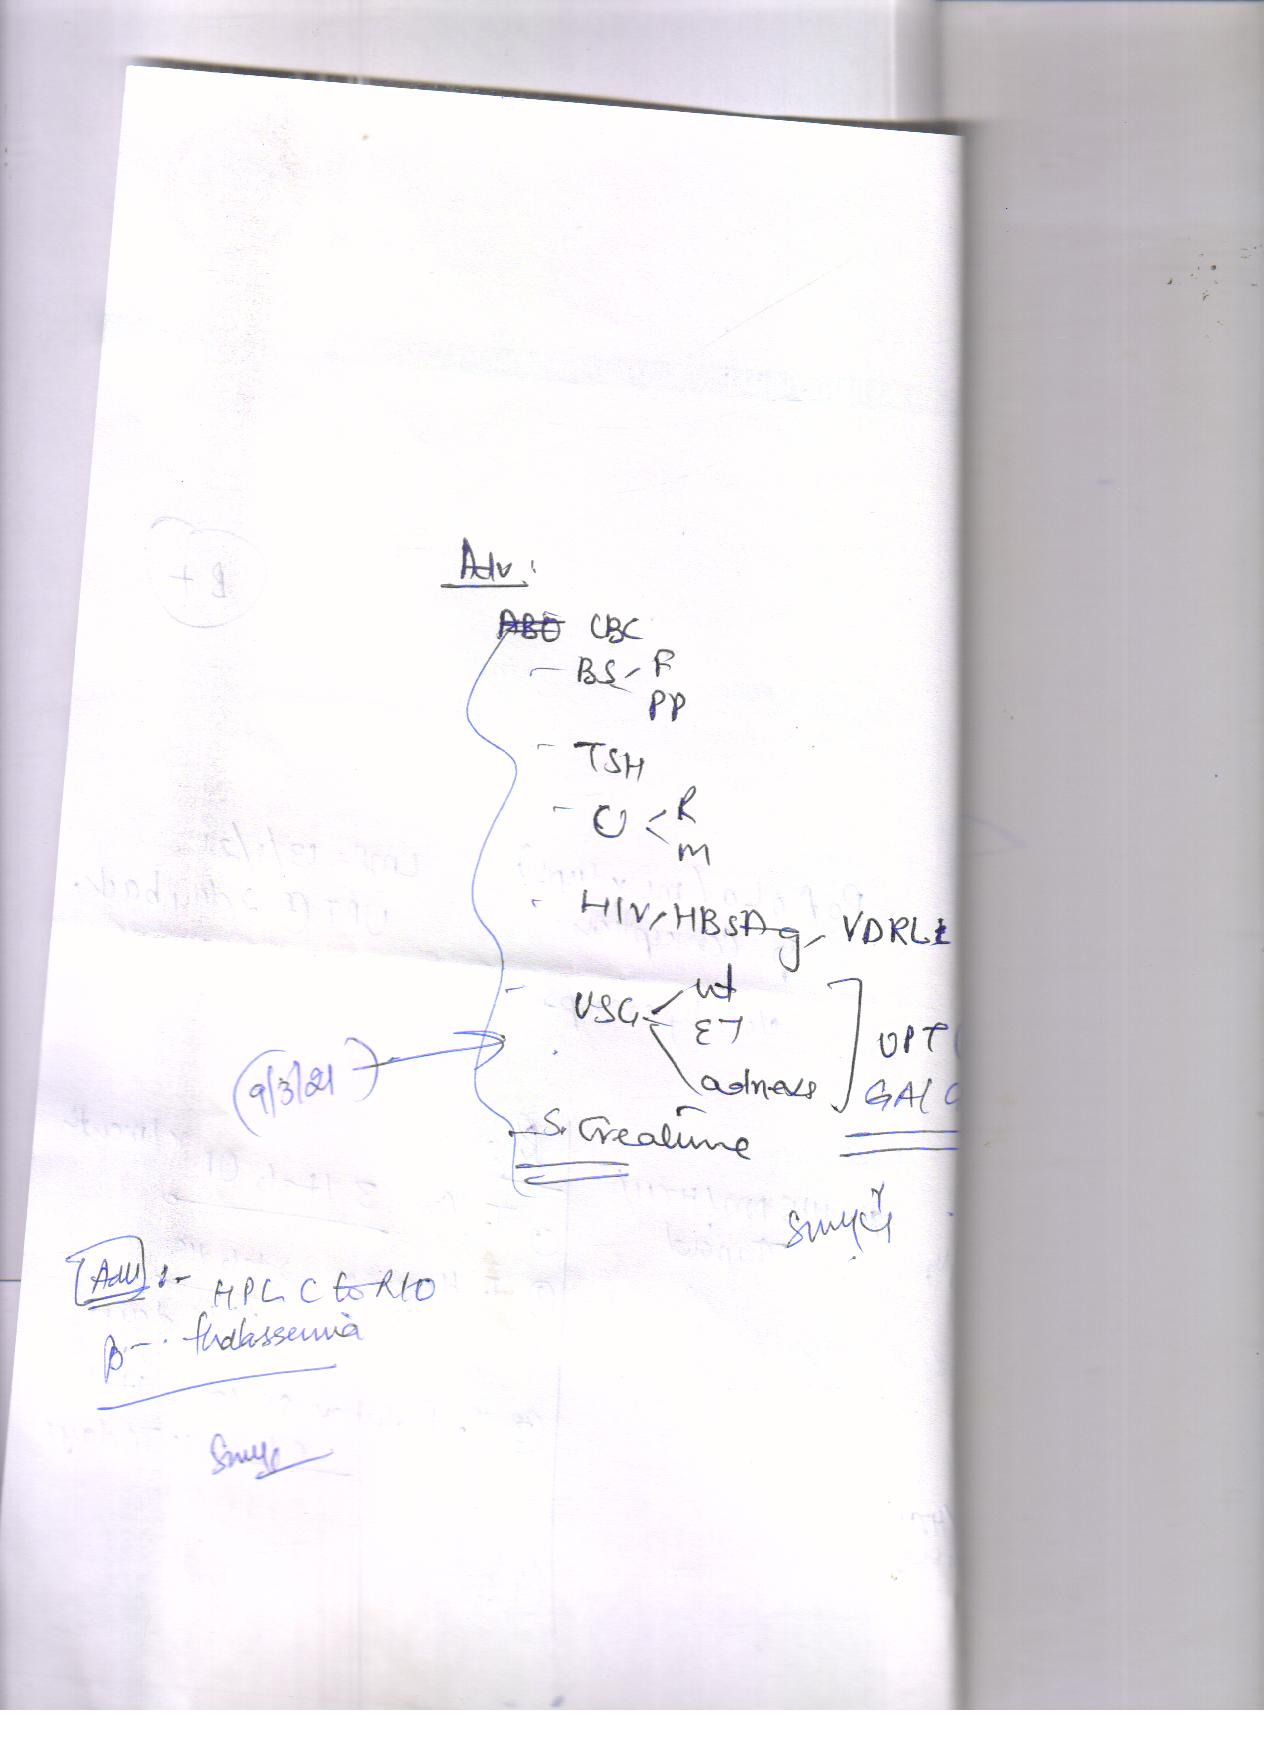 Adv :
ABO CBC
- BS - F
PP
- TSH
- U < R
M
- HIV, HBsAg, VDRL
- USG - ut
ET
adnexa
UPT (
GA(C
(9/3/21)
- S. Creatinine
Adv :- HPLC to R/O
β - thalassemia